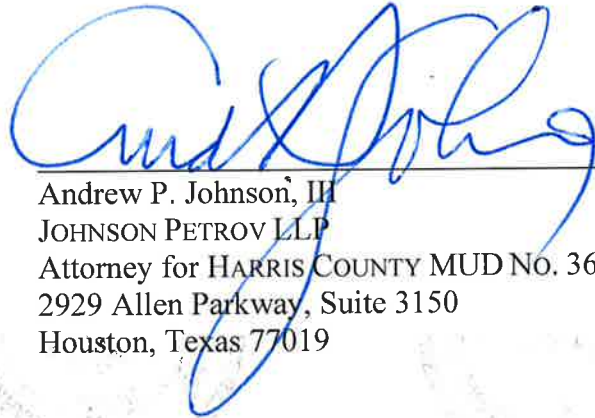 Andrew P. Johnson, III
JOHNSON PETROV LLP
Attorney for HARRIS COUNTY MUD NO. 36
2929 Allen Parkway, Suite 3150
Houston, Texas 77019